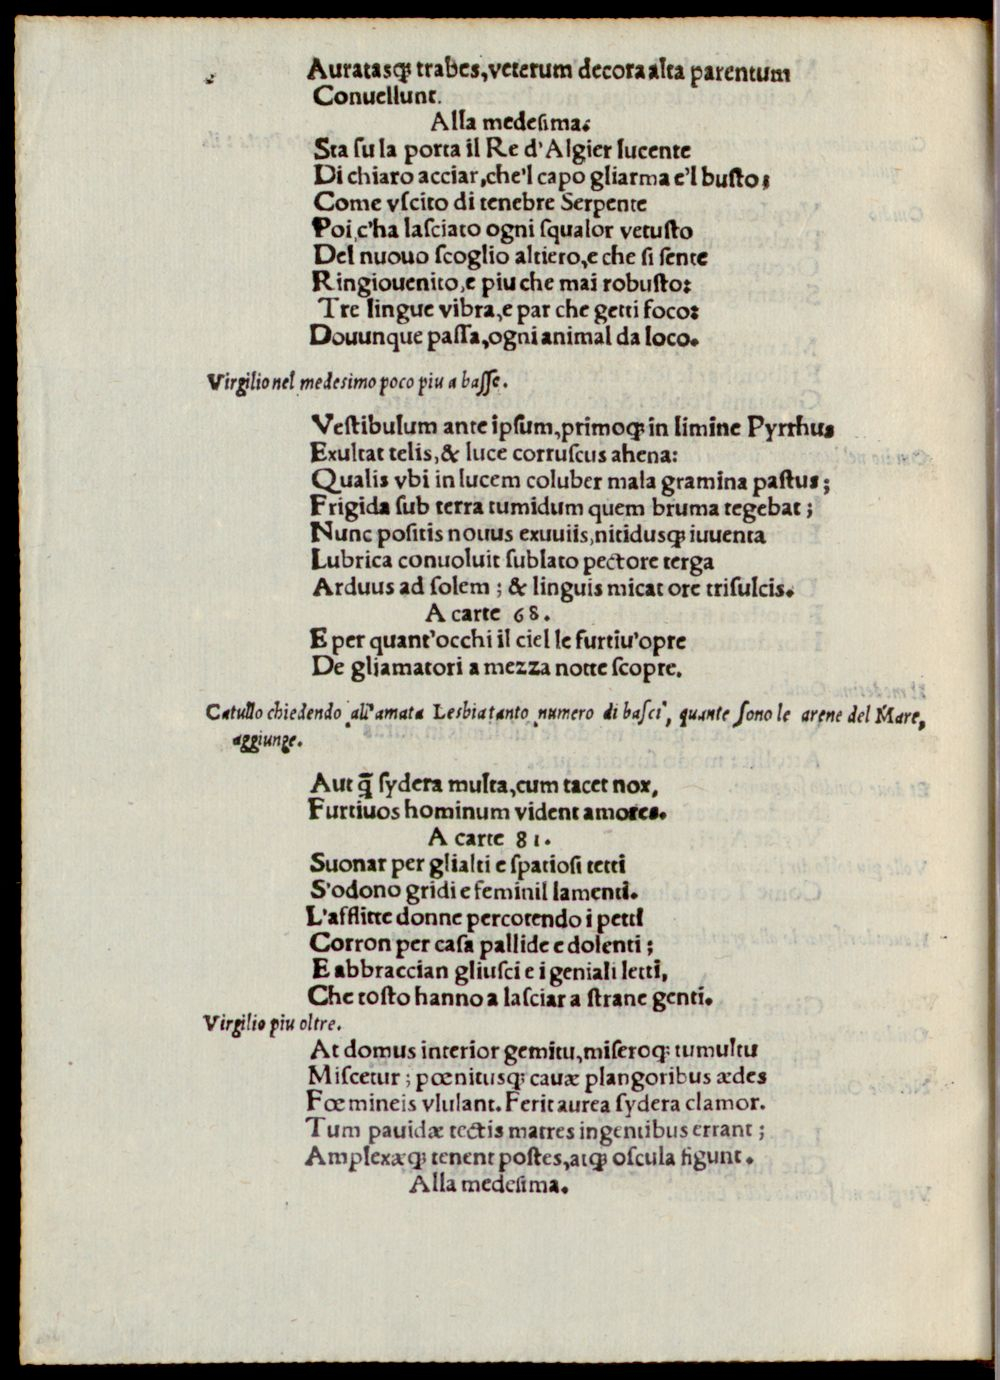 Auratasq; trabes, veterum decora alta parentum
Conuellunt.
Alla medesima.
Sta ſu la porta il Re d'Algier lucente
Di chiaro acciar, che'l capo gliarma e'l buſto;
Come vſcito di tenebre Serpente
Poi c'ha laſciato ogni ſqualor vetuſto
Del nuouo ſcoglio altiero, e che ſi ſente
Ringiouenito, e piu che mai robuſto:
Tre lingue vibra, e par che getti foco:
Douunque paſſa, ogni animal da loco.
Virgilio nel medesimo poco piu a baſſo.
Veſtibulum ante ipſum, primoq; in limine Pyrrhus
Exultat telis, & luce corruſcus ahena:
Qualis vbi in lucem coluber mala gramina paſtus;
Frigida sub terra tumidum quem bruma tegebat;
Nunc poſitis nouus exuuiis, nitidusq; iuuenta
Lubrica conuoluit ſublato pectore terga
Arduus ad ſolem; & linguis micat ore triſulcis.
A carte 68.
E per quant'occhi il ciel le furtiu'opre
De gliamatori a mezza notte ſcopre.
Catullo chiedendo all'amata Lesbia tanto numero di baſci, quante ſono le arene del Mare,
aggiunge.
Aut q̃ ſydera multa, cum tacet nox,
Furtiuos hominum vident amores.
A carte 81.
Suonar per glialti e ſpatioſi tetti
S'odono gridi e feminil lamenti.
L'afflitte donne percotendo i petti
Corron per caſa pallide e dolenti;
E abbraccian gliuſci e i geniali letti,
Che toſto hanno a laſciar a ſtrane genti.
Virgilio piu oltre.
At domus interior gemitu, miſeroq; tumultu
Miſcetur; pœnitusq; cauæ plangoribus ædes
Fœmineis vlulant. Ferit aurea ſydera clamor.
Tum pauidæ tectis matres ingentibus errant;
Amplexæq; tenent poſtes, atq; oſcula figunt.
Alla medeſima.